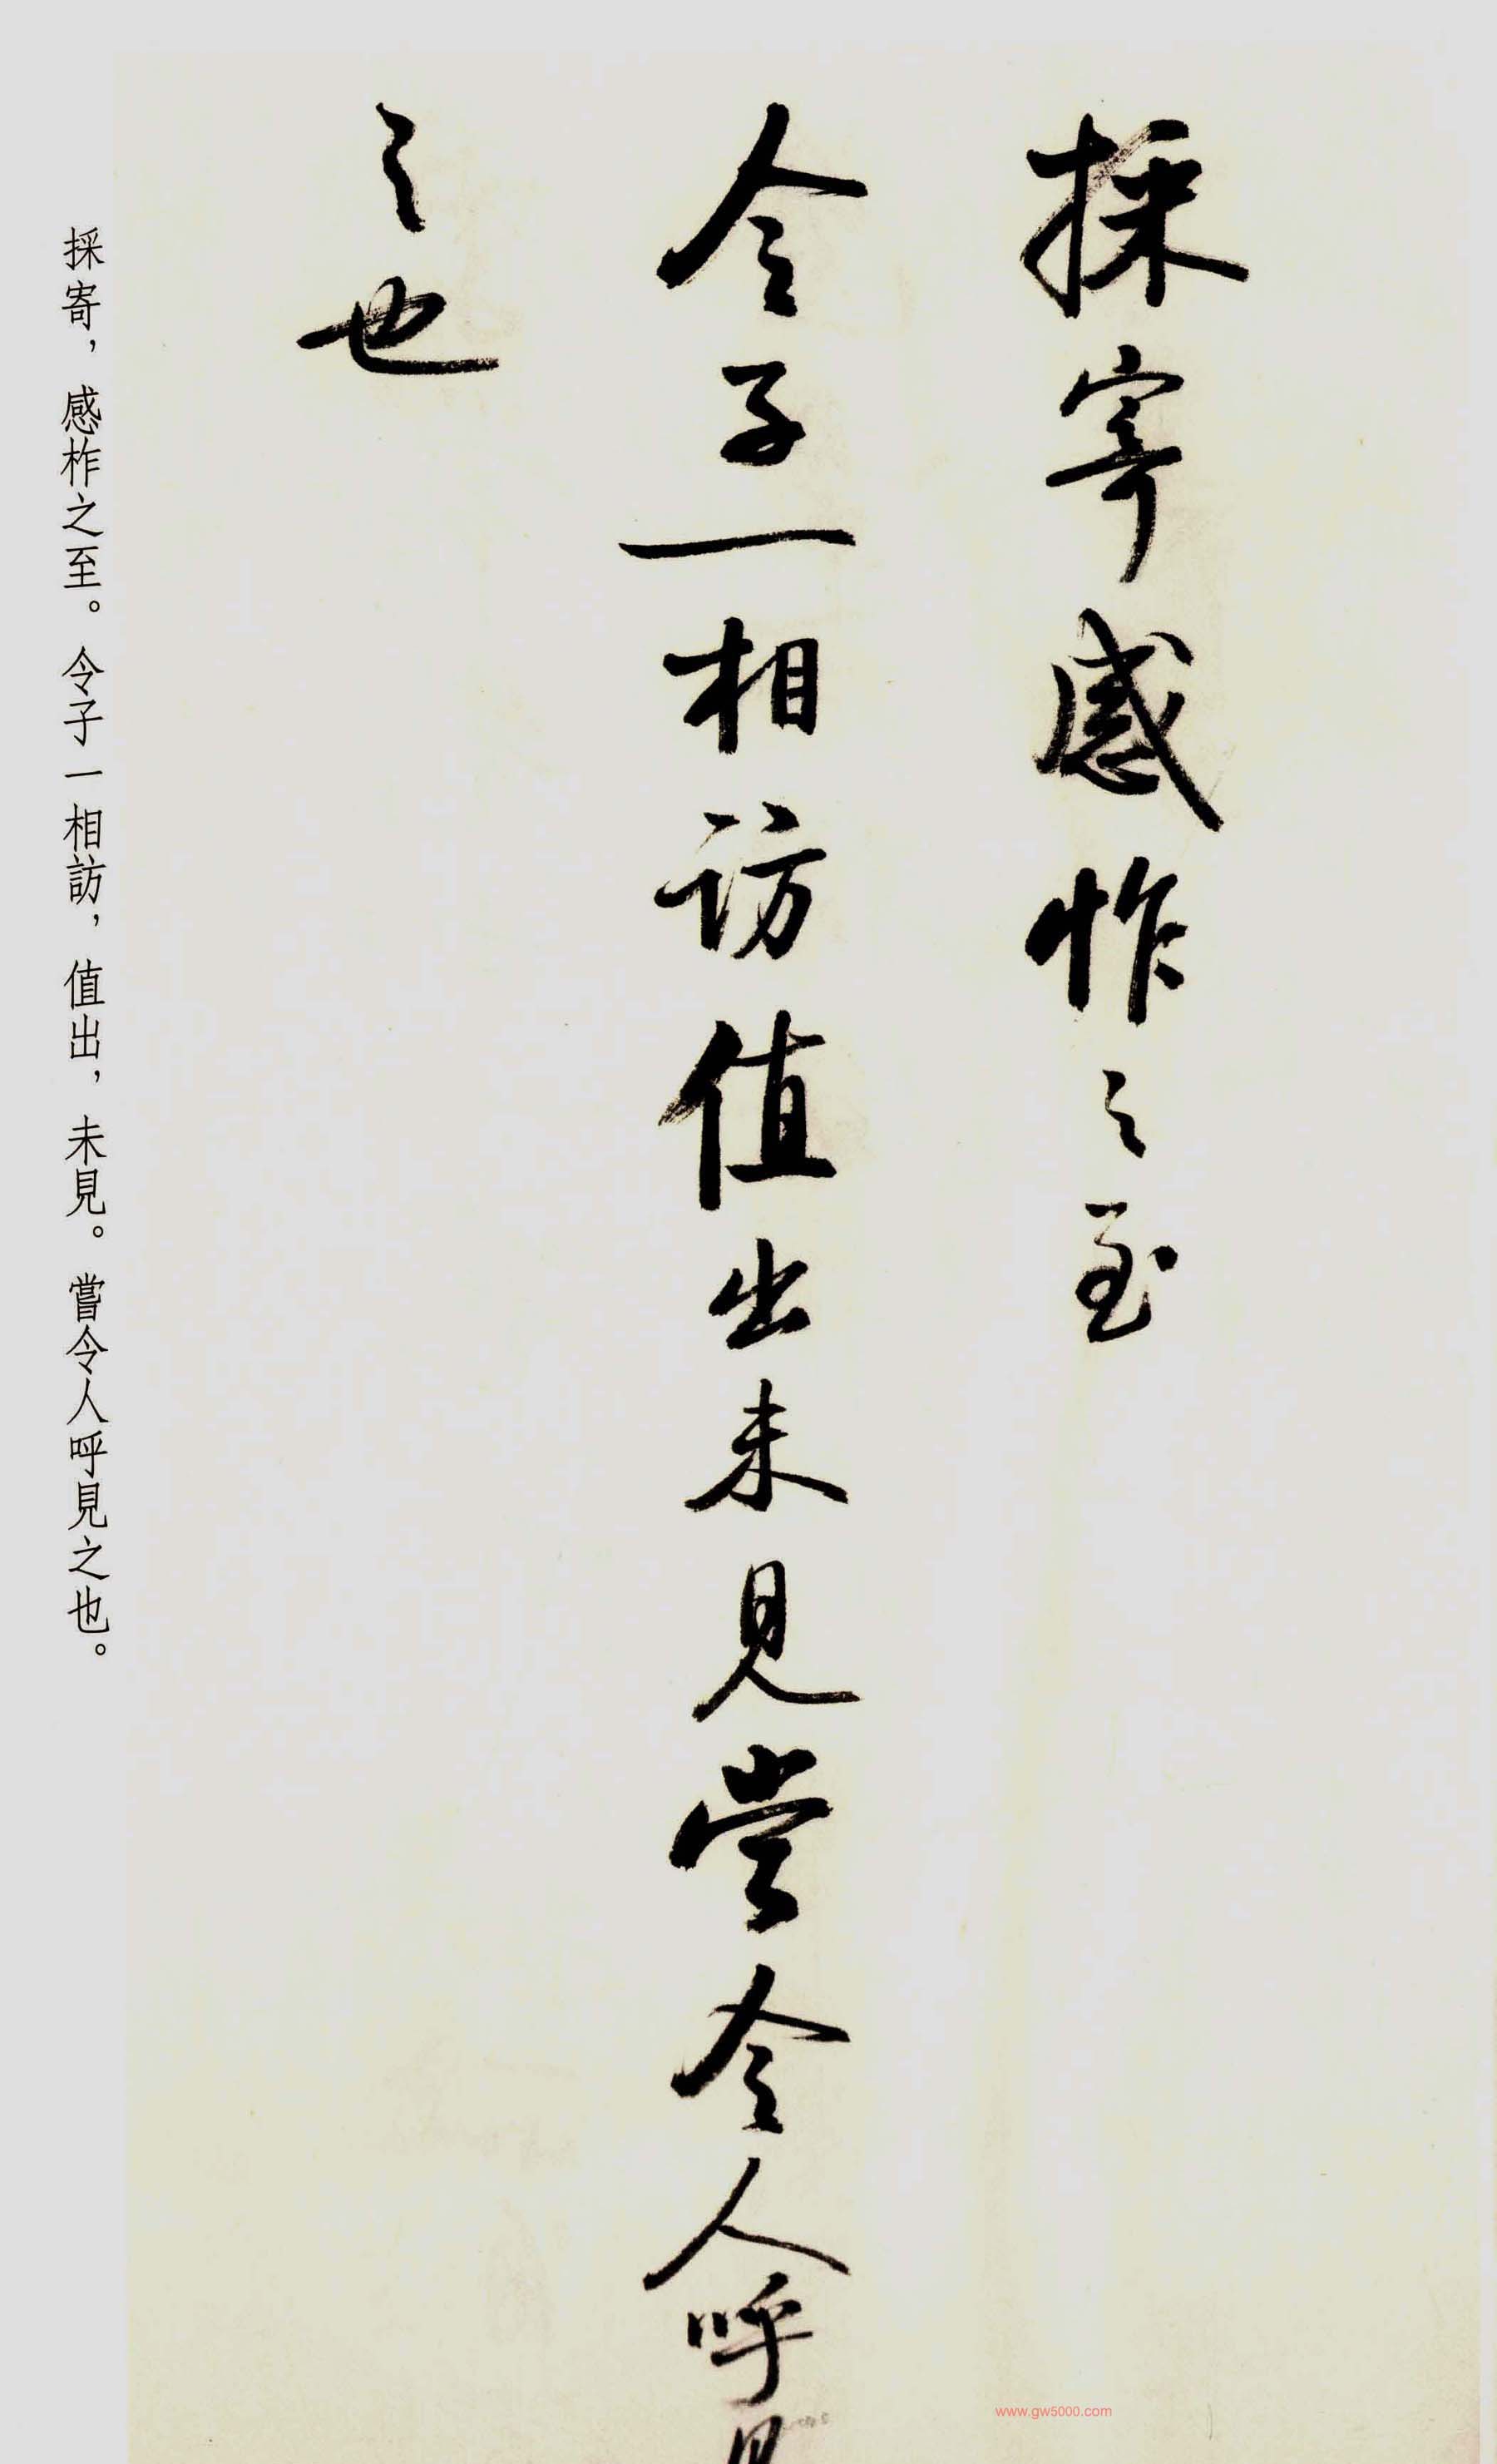 採寄感怍之至
令子一相訪值出未見嘗令人呼見
之也
採寄，感柞之至。令子一相訪，值出，未見。嘗令人呼見之也。
www.gw5000.com